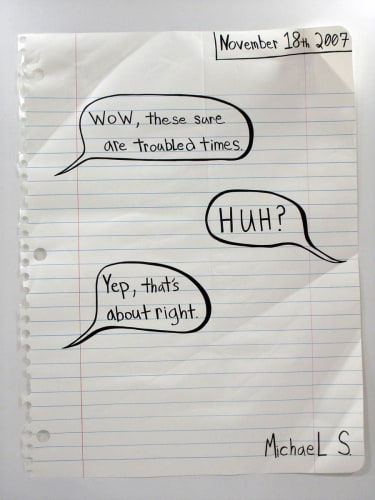 November 18th 2007
WOW, these sure
are troubled times.
HUH?
Yep, that's
about right.
Michael S.